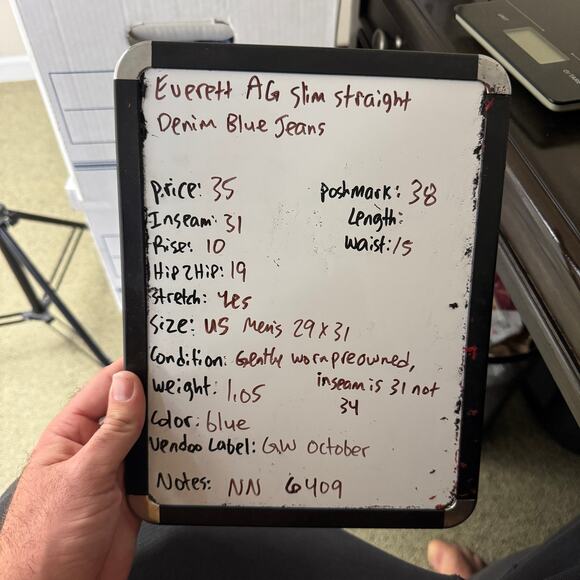 Everett AG Slim Straight
Denim Blue Jeans
Price: 35
Poshmark: 38
Inseam: 31
Length:
Rise: 10
Waist: 15
Hip2Hip: 19
Stretch: Yes
Size: US Men's 29x31
Condition: Gently worn preowned,
inseam is 31 not
34
Weight: 1.05
Color: blue
Vendoo Label: GW October
Notes: NN 6409